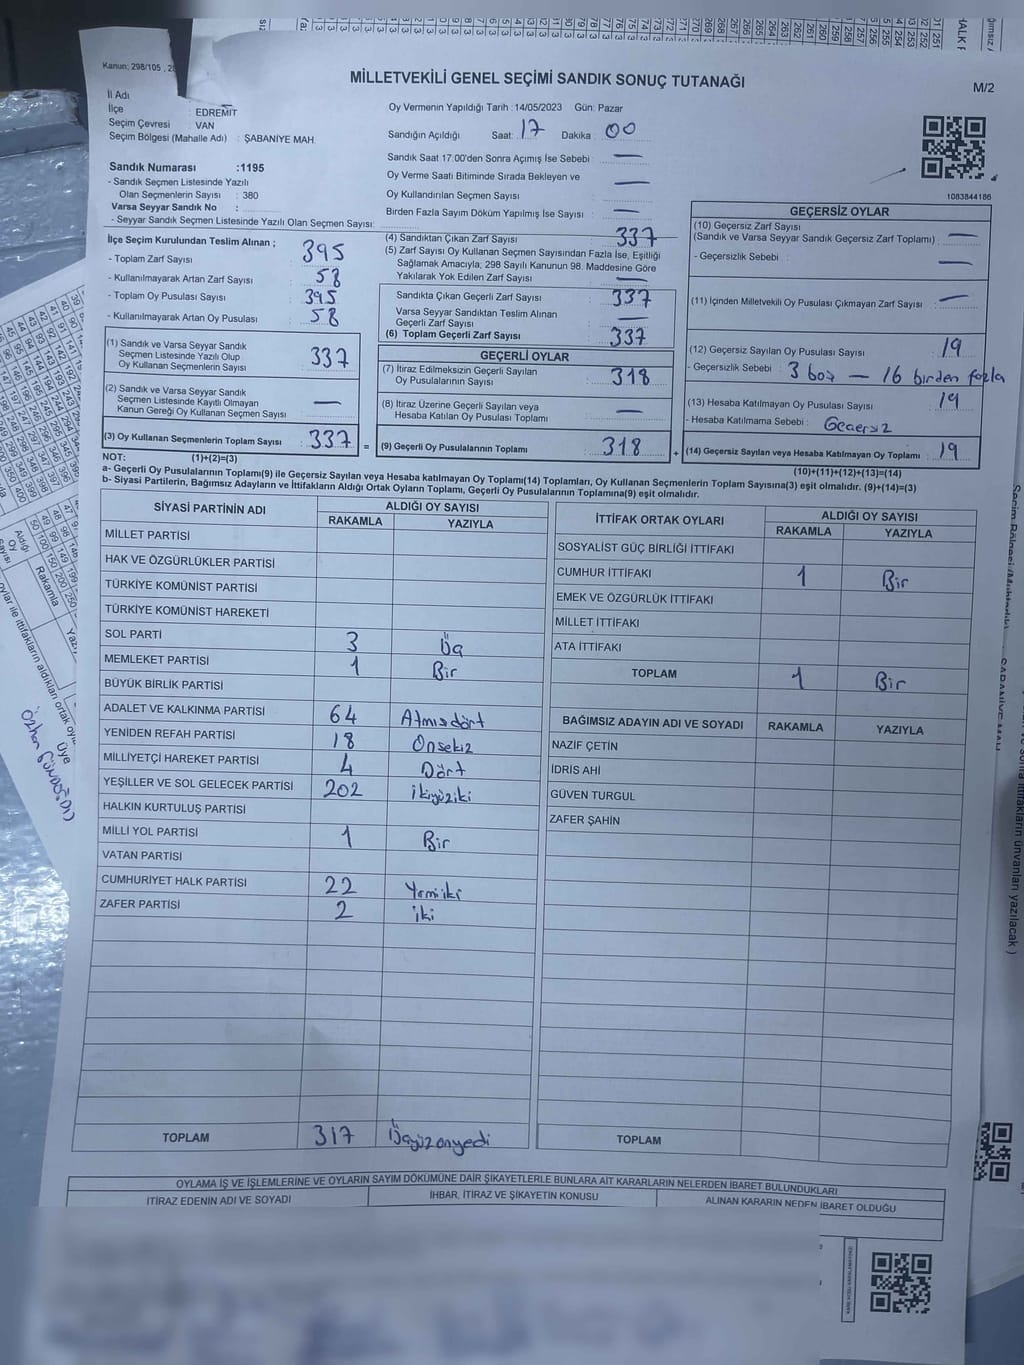 Kanun: 298/105
MİLLETVEKİLİ GENEL SEÇİMİ SANDIK SONUÇ TUTANAĞI
M/2
İl Adı
İlçe : EDREMİT
Seçim Çevresi : VAN
Seçim Bölgesi (Mahalle Adı) : ŞABANİYE MAH.
Oy Vermenin Yapıldığı Tarih : 14/05/2023 Gün: Pazar
Sandığın Açıldığı Saat: 17 Dakika : 00
Sandık Saat 17:00'den Sonra Açımış İse Sebebi : —
Oy Verme Saati Bitiminde Sırada Bekleyen ve
Oy Kullandırılan Seçmen Sayısı : —
Birden Fazla Sayım Döküm Yapılmış İse Sayısı : —
1083844186
Sandık Numarası :1195
- Sandık Seçmen Listesinde Yazılı
Olan Seçmenlerin Sayısı : 380
Varsa Seyyar Sandık No :
- Seyyar Sandık Seçmen Listesinde Yazılı Olan Seçmen Sayısı:
İlçe Seçim Kurulundan Teslim Alınan ;
- Toplam Zarf Sayısı : 395
- Kullanılmayarak Artan Zarf Sayısı : 58
- Toplam Oy Pusulası Sayısı : 395
- Kullanılmayarak Artan Oy Pusulası : 58
(1) Sandık ve Varsa Seyyar Sandık
Seçmen Listesinde Yazılı Olup
Oy Kullanan Seçmenlerin Sayısı : 337
(2) Sandık ve Varsa Seyyar Sandık
Seçmen Listesinde Kayıtlı Olmayan
Kanun Gereği Oy Kullanan Seçmen Sayısı : —
(3) Oy Kullanan Seçmenlerin Toplam Sayısı : 337
=
(4) Sandıktan Çıkan Zarf Sayısı : 337
(5) Zarf Sayısı Oy Kullanan Seçmen Sayısından Fazla İse, Eşitliği
Sağlamak Amacıyla; 298 Sayılı Kanunun 98. Maddesine Göre
Yakılarak Yok Edilen Zarf Sayısı : —
Sandıkta Çıkan Geçerli Zarf Sayısı : 337
Varsa Seyyar Sandıktan Teslim Alınan
Geçerli Zarf Sayısı : —
(6) Toplam Geçerli Zarf Sayısı : 337
GEÇERLİ OYLAR
(7) İtiraz Edilmeksizin Geçerli Sayılan
Oy Pusulalarının Sayısı : 318
(8) İtiraz Üzerine Geçerli Sayılan veya
Hesaba Katılan Oy Pusulası Toplamı : —
(9) Geçerli Oy Pusulalarının Toplamı : 318
+
GEÇERSİZ OYLAR
(10) Geçersiz Zarf Sayısı
(Sandık ve Varsa Seyyar Sandık Geçersiz Zarf Toplamı) : —
- Geçersizlik Sebebi : —
(11) İçinden Milletvekili Oy Pusulası Çıkmayan Zarf Sayısı : —
(12) Geçersiz Sayılan Oy Pusulası Sayısı : 19
- Geçersizlik Sebebi : 3 boş — 16 birden fazla
(13) Hesaba Katılmayan Oy Pusulası Sayısı : 19
- Hesaba Katılmama Sebebi : Geçersiz
(14) Geçersiz Sayılan veya Hesaba Katılmayan Oy Toplamı : 19
NOT: (1)+(2)=(3)
(10)+(11)+(12)+(13)=(14)
a- Geçerli Oy Pusulalarının Toplamı(9) ile Geçersiz Sayılan veya Hesaba katılmayan Oy Toplamı(14) Toplamları, Oy Kullanan Seçmenlerin Toplam Sayısına(3) eşit olmalıdır. (9)+(14)=(3)
b- Siyasi Partilerin, Bağımsız Adayların ve İttifakların Aldığı Ortak Oyların Toplamı, Geçerli Oy Pusulalarının Toplamına(9) eşit olmalıdır.
SİYASİ PARTİNİN ADI ALDIĞI OY SAYISI
RAKAMLA YAZIYLA
MİLLET PARTİSİ
HAK VE ÖZGÜRLÜKLER PARTİSİ
TÜRKİYE KOMÜNİST PARTİSİ
TÜRKİYE KOMÜNİST HAREKETİ
SOL PARTİ 3 Üç
MEMLEKET PARTİSİ 1 Bir
BÜYÜK BİRLİK PARTİSİ
ADALET VE KALKINMA PARTİSİ 64 Atmışdört
YENİDEN REFAH PARTİSİ 18 Onsekiz
MİLLİYETÇİ HAREKET PARTİSİ 4 Dört
YEŞİLLER VE SOL GELECEK PARTİSİ 202 ikiyüziki
HALKIN KURTULUŞ PARTİSİ
MİLLİ YOL PARTİSİ 1 Bir
VATAN PARTİSİ
CUMHURİYET HALK PARTİSİ 22 Yirmiiki
ZAFER PARTİSİ 2 iki
TOPLAM 317 Üçyüzonyedi
İTTİFAK ORTAK OYLARI ALDIĞI OY SAYISI
RAKAMLA YAZIYLA
SOSYALİST GÜÇ BİRLİĞİ İTTİFAKI
CUMHUR İTTİFAKI 1 Bir
EMEK VE ÖZGÜRLÜK İTTİFAKI
MİLLET İTTİFAKI
ATA İTTİFAKI
TOPLAM 1 Bir
BAĞIMSIZ ADAYIN ADI VE SOYADI RAKAMLA YAZIYLA
NAZİF ÇETİN
İDRİS AHİ
GÜVEN TURGUL
ZAFER ŞAHİN
TOPLAM
OYLAMA İŞ VE İŞLEMLERİNE VE OYLARIN SAYIM DÖKÜMÜNE DAİR ŞİKAYETLERLE BUNLARA AİT KARARLARIN NELERDEN İBARET BULUNDUKLARI
İTİRAZ EDENİN ADI VE SOYADI İHBAR, İTİRAZ VE ŞİKAYETİN KONUSU ALINAN KARARIN NEDEN İBARET OLDUĞU